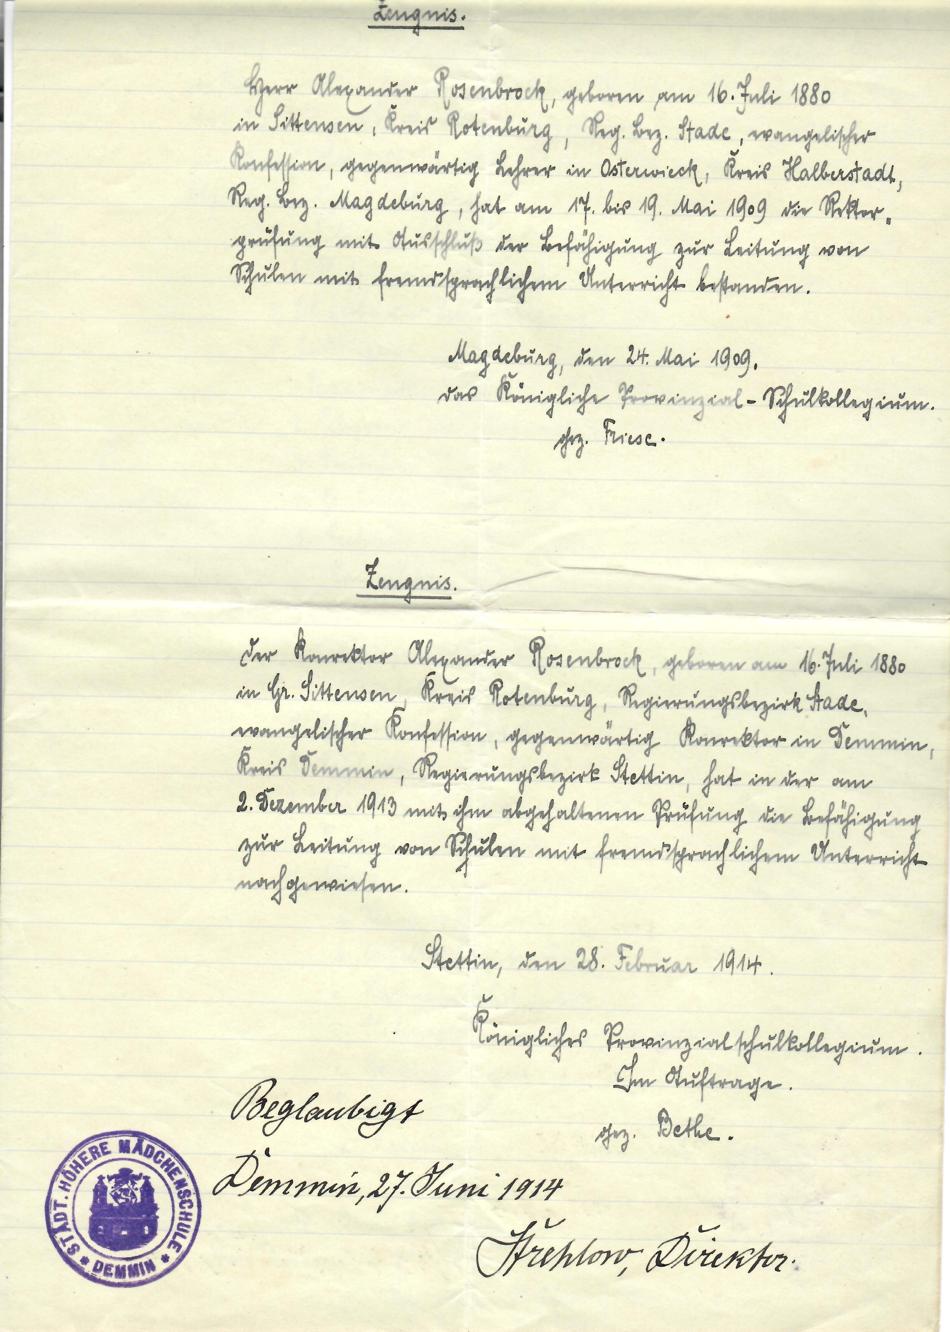 Zeugnis.
Herr Alexander Rosenbrock, geboren am 16. Juli 1880
in Sittensen, Kreis Rotenburg, Reg. Bez. Stade, evangelischer
Konfession, gegenwärtig Lehrer in Osterwieck, Kreis Halberstadt,
Reg. Bez. Magdeburg, hat am 17. bis 19. Mai 1909 die Rektor-
prüfung mit Ausschluß der Befähigung zur Leitung von
Schulen mit fremdsprachlichem Unterricht bestanden.
Magdeburg, den 24. Mai 1909.
Das Königliche Provinzial-Schulkollegium.
gez. Friese.
Zeugnis.
Der Konrektor Alexander Rosenbrock, geboren am 16. Juli 1880
in Gr. Sittensen, Kreis Rotenburg, Regierungsbezirk Stade,
evangelischer Konfession, gegenwärtig Konrektor in Demmin,
Kreis Demmin, Regierungsbezirk Stettin, hat in der am
2. Dezember 1913 mit ihm abgehaltenen Prüfung die Befähigung
zur Leitung von Schulen mit fremdsprachlichem Unterricht
nachgewiesen.
Stettin, den 28. Februar 1914.
Königliches Provinzialschulkollegium.
Im Auftrage.
gez. Bethe.
Beglaubigt
Demmin, 27. Juni 1914
Strehlow, Direktor.
STÄDT. HÖHERE MÄDCHENSCHULE
* DEMMIN *